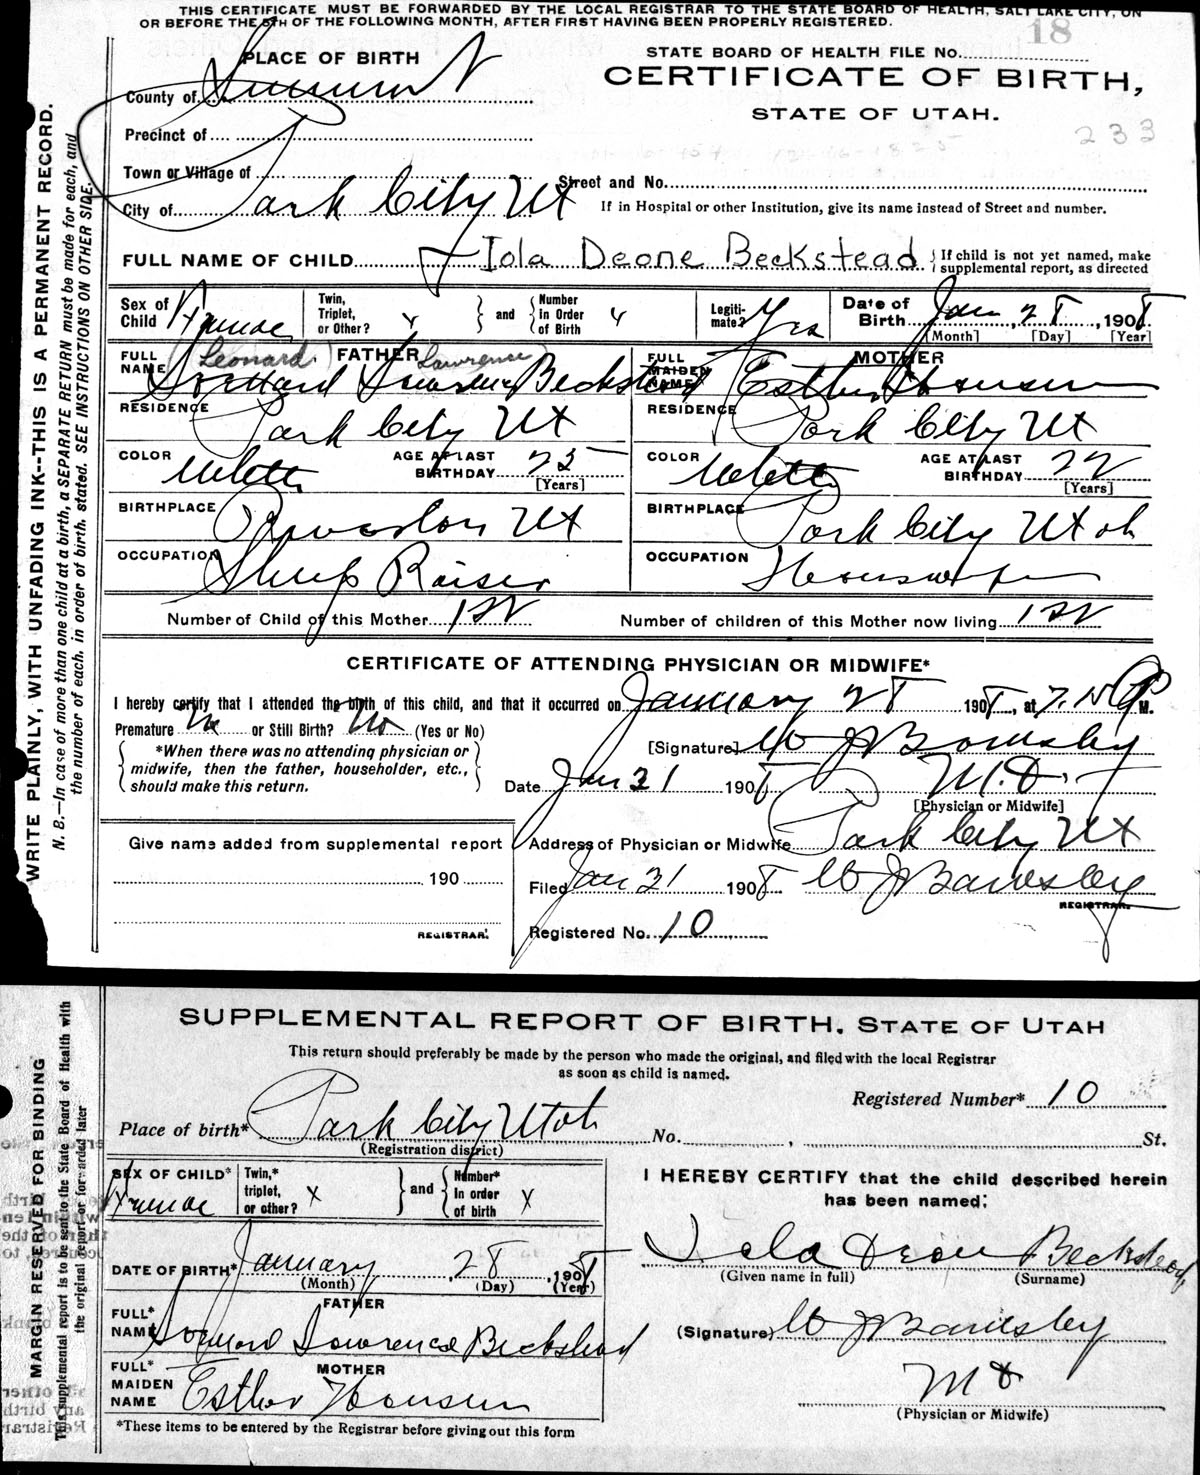 THIS CERTIFICATE MUST BE FORWARDED BY THE LOCAL REGISTRAR TO THE STATE BOARD OF HEALTH, SALT LAKE CITY, ON
OR BEFORE THE 5TH OF THE FOLLOWING MONTH, AFTER FIRST HAVING BEEN PROPERLY REGISTERED.
18
PLACE OF BIRTH
STATE BOARD OF HEALTH FILE NO.
County of Summit
CERTIFICATE OF BIRTH,
STATE OF UTAH.
Precinct of
233
Town or Village of
Street and No.
City of Park City Ut
If in Hospital or other Institution, give its name instead of Street and number.
FULL NAME OF CHILD Iola Deone Beckstead
If child is not yet named, make
supplemental report, as directed
Sex of Child Female
Twin, Triplet, or Other? x
and
Number in Order of Birth x
Legiti-mate? Yes
Date of Birth Jan, 28, 1908
[Month] [Day] [Year]
FULL NAME FATHER
(Leonard) Lawrence
Lawrence Beckstead
FULL MAIDEN NAME MOTHER
Esther Hansen
RESIDENCE Park City Ut
RESIDENCE Park City Ut
COLOR White
AGE AT LAST BIRTHDAY 25
[Years]
COLOR White
AGE AT LAST BIRTHDAY 22
[Years]
BIRTHPLACE Ut
BIRTHPLACE Park City Utah
OCCUPATION Sheep Raiser
OCCUPATION Housewife
Number of Child of this Mother 1st
Number of children of this Mother now living 1st
CERTIFICATE OF ATTENDING PHYSICIAN OR MIDWIFE*
I hereby certify that I attended the birth of this child, and that it occurred on January 28 1908, at 7.15 P M.
Premature No or Still Birth? No (Yes or No)
[Signature] W J Bardsley
*When there was no attending physician or
midwife, then the father, householder, etc.,
should make this return.
Date Jan 31 1908 M.D.
[Physician or Midwife]
Give name added from supplemental report
Address of Physician or Midwife Park City Ut
190
Filed Jan 31 1908 W J Bardsley
REGISTRAR.
REGISTRAR.
Registered No. 10
WRITE PLAINLY, WITH UNFADING INK--THIS IS A PERMANENT RECORD.
N. B.—In case of more than one child at a birth, a SEPARATE RETURN must be made for each, and
the number of each, in order of birth, stated. SEE INSTRUCTIONS ON OTHER SIDE.
SUPPLEMENTAL REPORT OF BIRTH. STATE OF UTAH
This return should preferably be made by the person who made the original, and filed with the local Registrar
as soon as child is named.
Registered Number* 10
Place of birth* Park City Utah No. , St.
(Registration district)
SEX OF CHILD* Female
Twin,* triplet, or other? x
and
Number* In order of birth x
I HEREBY CERTIFY that the child described herein
has been named:
DATE OF BIRTH* January 28, 1908
(Month) (Day) (Year)
Iola Deon Beckstead
(Given name in full) (Surname)
FATHER
FULL* NAME Lawrence Beckstead
(Signature) W J Bardsley
MOTHER
FULL* MAIDEN NAME Esther Hansen
MD
(Physician or Midwife)
*These items to be entered by the Registrar before giving out this form
MARGIN RESERVED FOR BINDING
This supplemental report is to be sent to the State Board of Health with
the original report or forwarded later